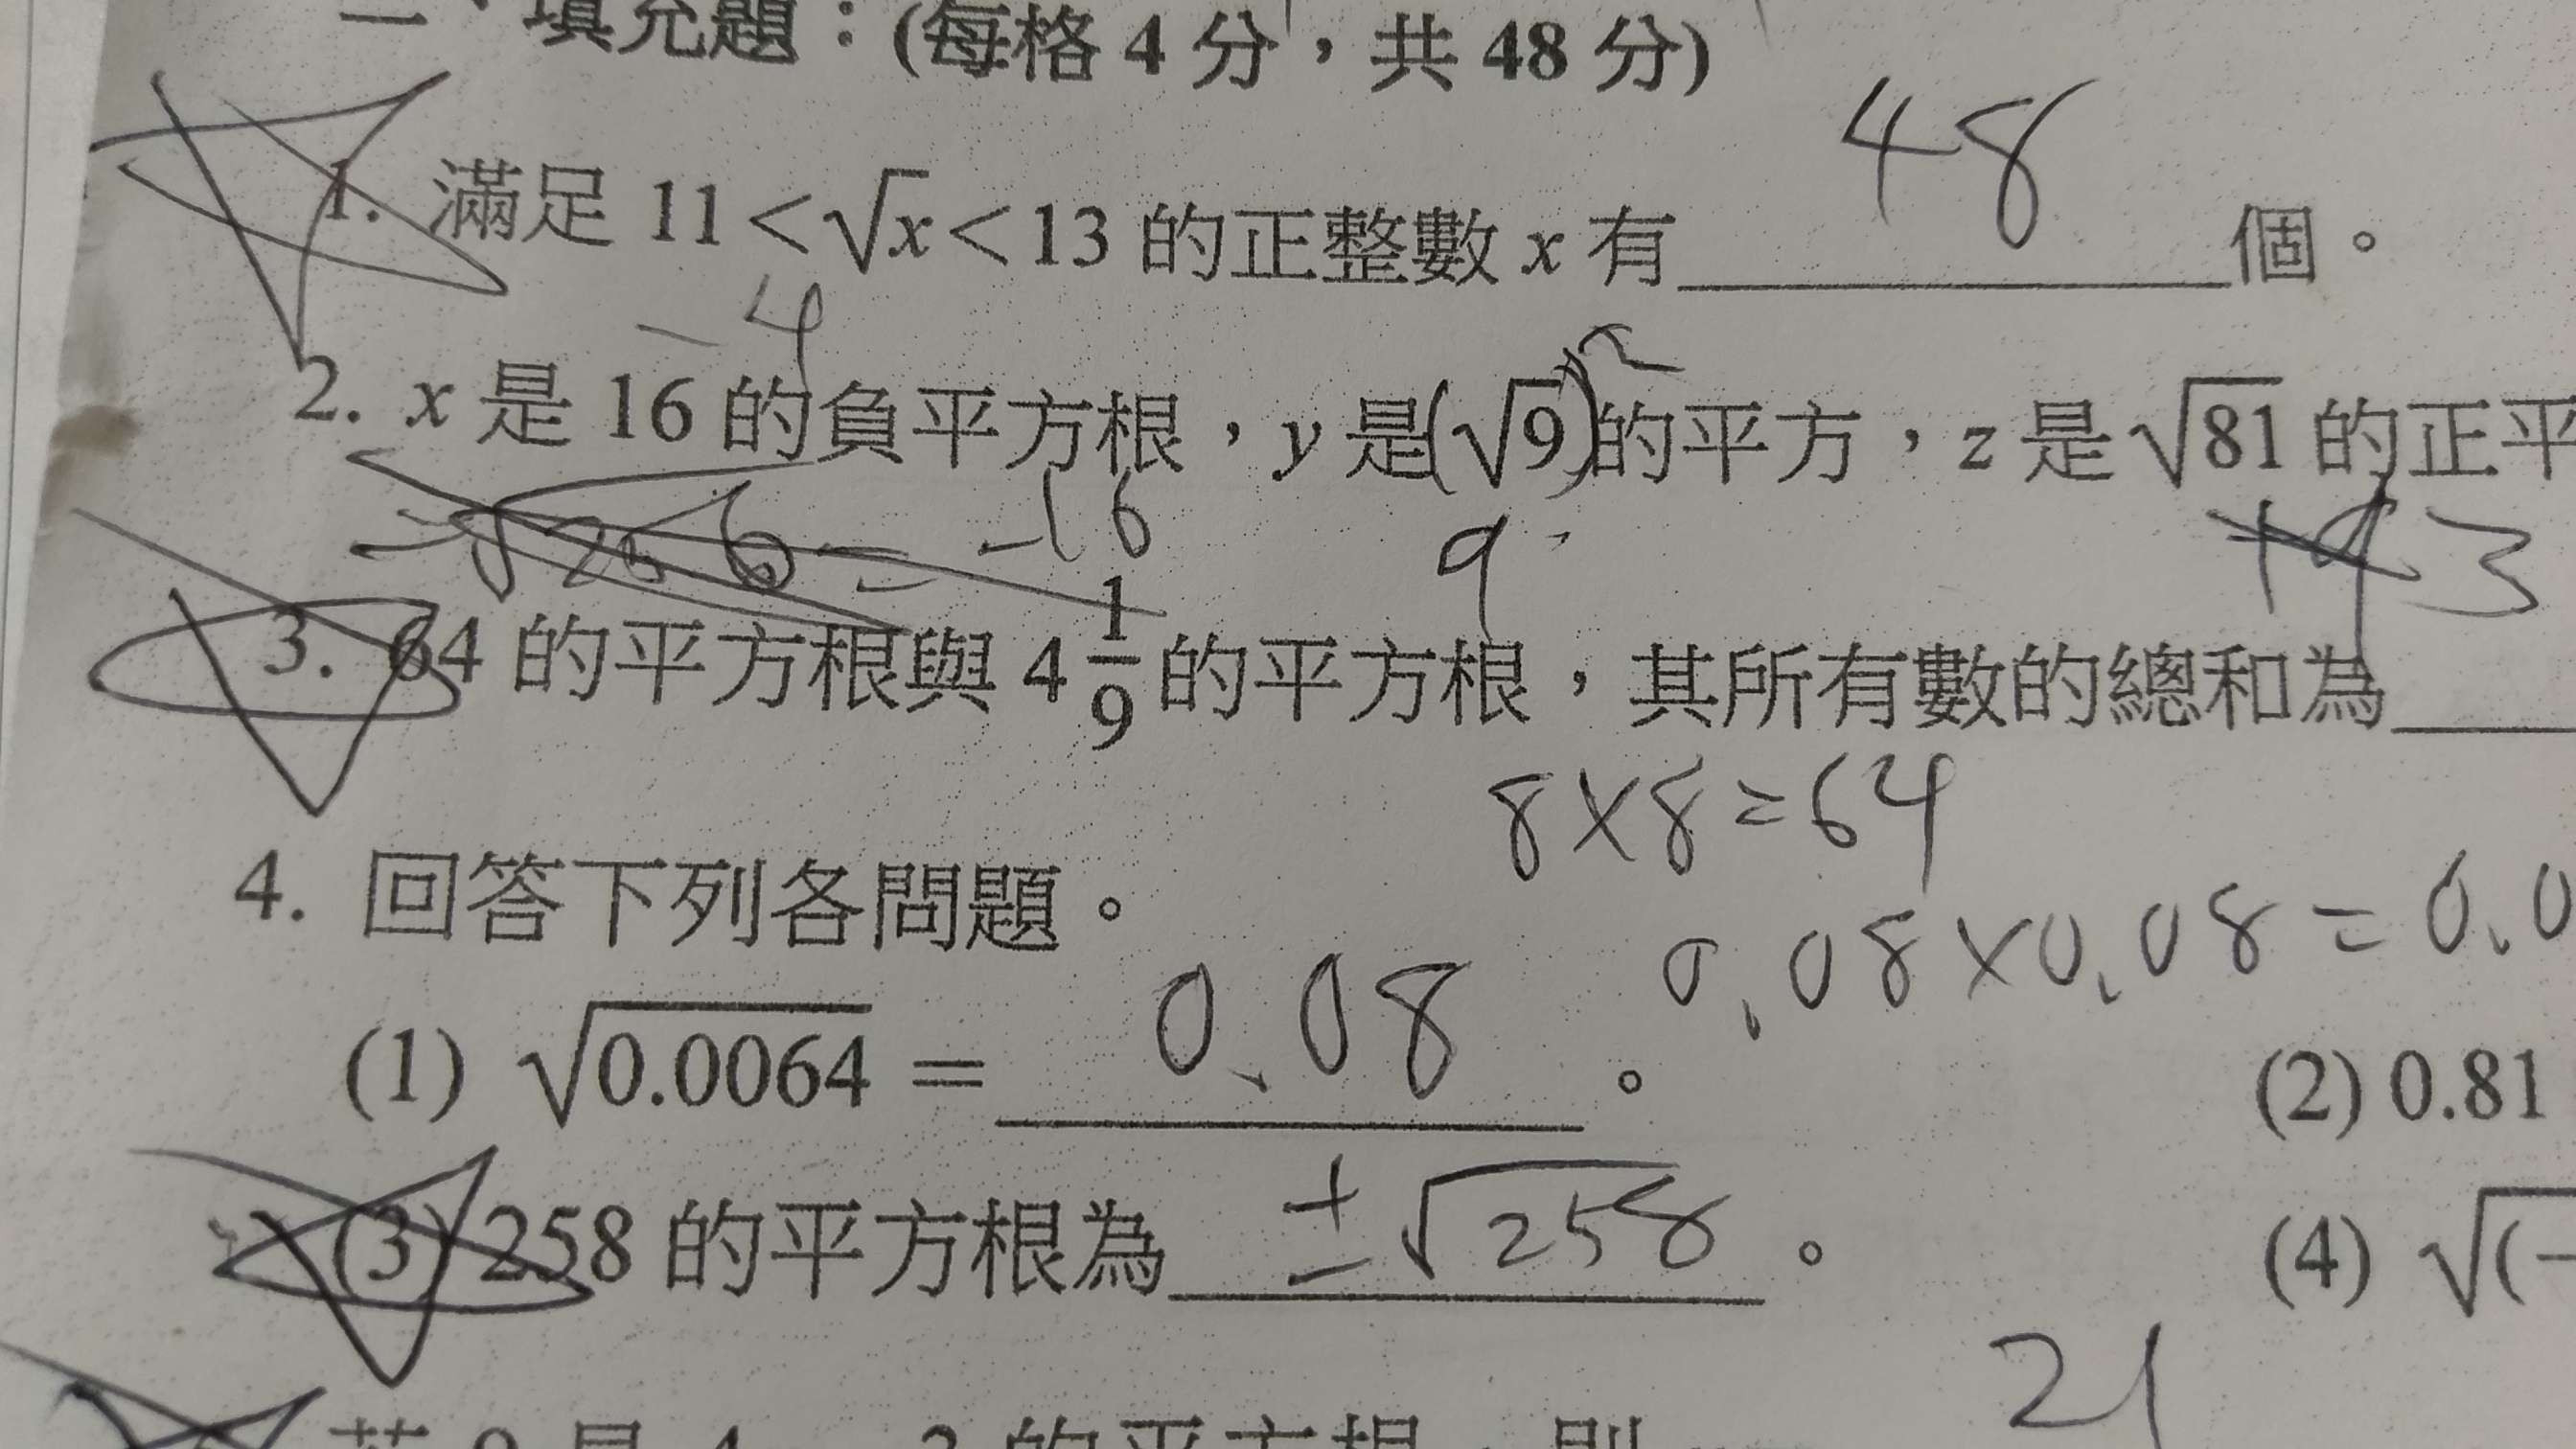 二、填充題：(每格 4 分，共 48 分)
1. 滿足 11 < √x < 13 的正整數 x 有 48 個。
-4
2. x 是 16 的負平方根，y 是(√9)²的平方，z 是 √81 的正平
-16 9 3
3. 64 的平方根與 4 1/9 的平方根，其所有數的總和為
8×8=64
4. 回答下列各問題。
0.08×0.08=0.0
(1) √0.0064 = 0.08 。 (2) 0.81
(3) 258 的平方根為 ±√258 。 (4) √(-
21
的平方根，則